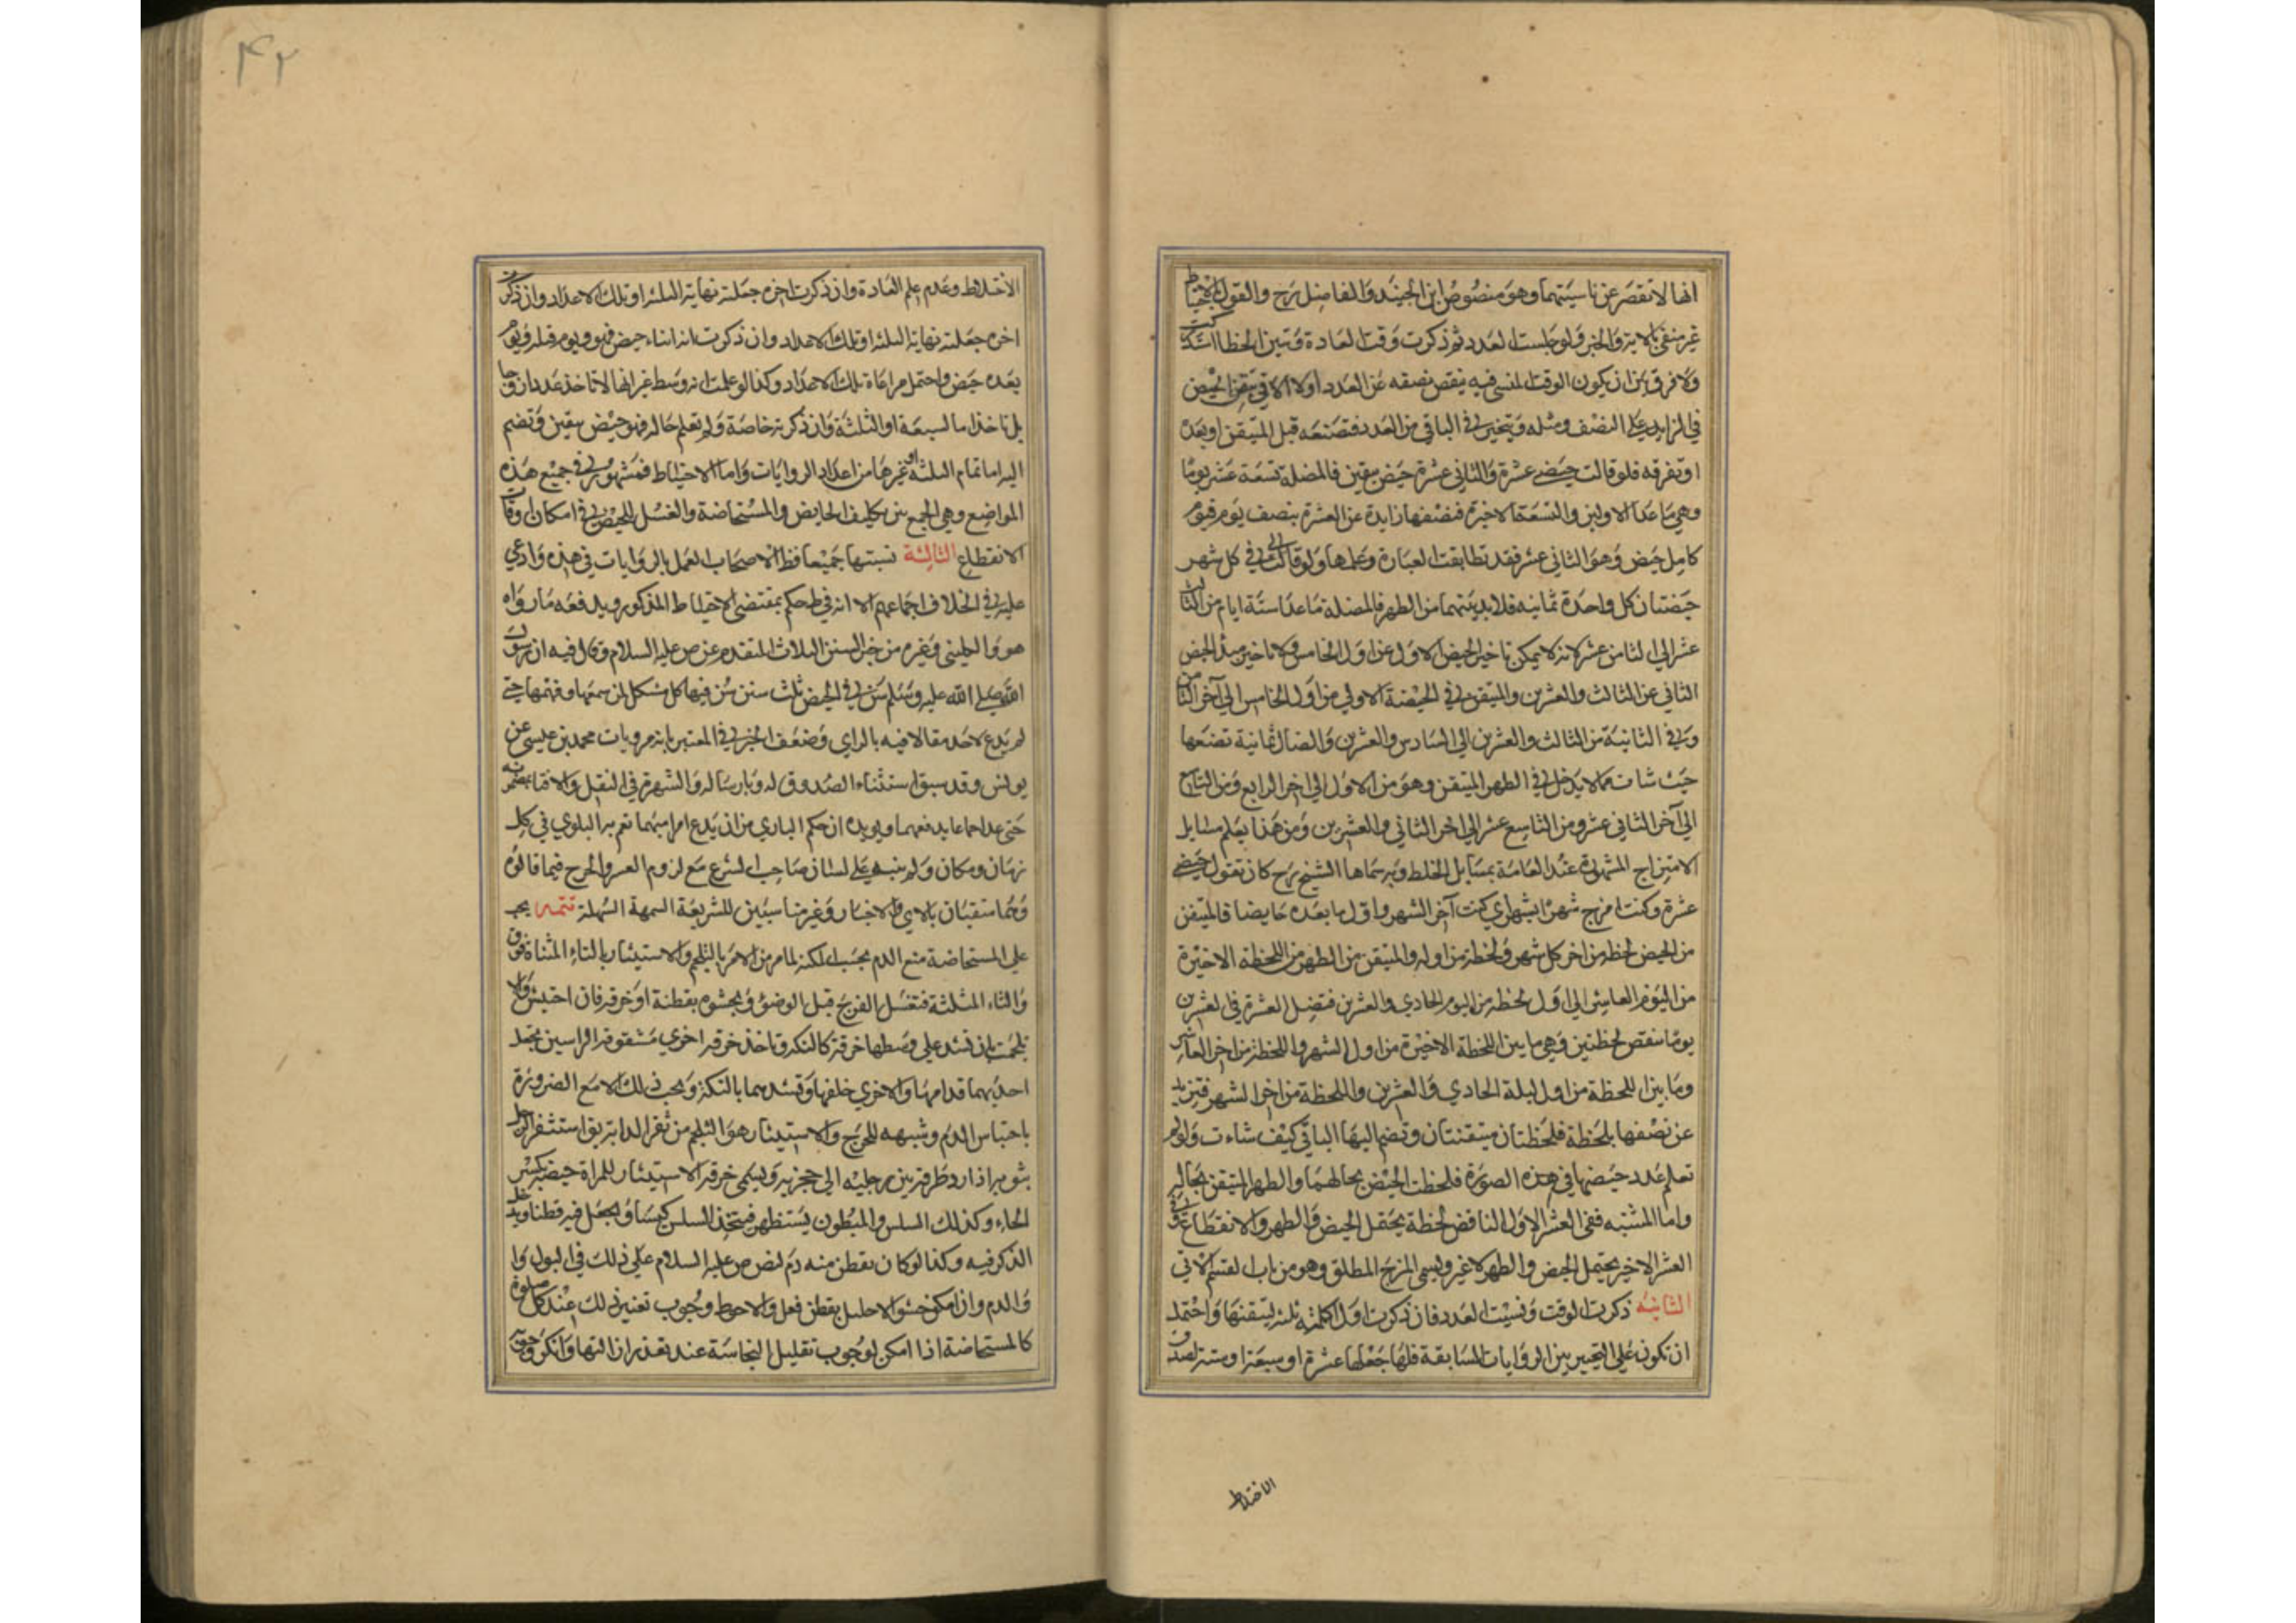 انها لا تقصر عن ناسيتهما وهو منصوص ابن الجنيد والفاضل رح والقول بالاحتياط
غير منفي بالاية والخبر ولو جلست العدد ثم ذكرت وقت العادة وتبين الخطا استدركت
ولا فرق بين ان يكون الوقت المنسي فيه ينقص نصفه عن العدد اولا الا في تيقن الحيض
في الزايد على النصف ومثله وتتخير في الباقي من العدد فتضعه قبل المتيقن او بعده
او تفرقه فلو قالت حيضي عشرة والثاني عشر حيض بيقين فالمضلة تسعة عشر يوما
وهي ما عدا الاولين والتسعة الاخيرة فنصفها زايدة عن العشرة بنصف يوم فيوم
كامل حيض وهو الثاني عشر فقد تطابقت العبارة وعملها ولو قالت لي في كل شهر
حيضتان كل واحدة ثمانيه فلا بد بينهما من الطهر فالمضلة ما عدا ستة ايام من الثالث
عشر الي الثامن عشر لانه لا يمكن تاخير الحيض الاول عن اول الخامس ولا تاخير مبدا الحيض
الثاني عن الثالث والعشرين والمتيقن في الحيضة الاولي من اول الخامس الي آخر الثامن
وفي الثانية من الثالث والعشرين الي السادس والعشرين والضال ثمانية تضعها
حيث شات مما لا يدخل في الطهر المتيقن وهو من الاول الي اخر الرابع ومن التاسع
الي آخر الثاني عشر ومن التاسع عشر الي اخر الثاني والعشرين ومن هذا يعلم مسايل
الامتزاج المشهورة عند العامة بمسايل الخلط وبه سماها الشيخ رح كان تقول حيضي
عشرة وكنت امزج شهرا بشهر اي كنت آخر الشهر واول ما بعده حايضا فالمتيقن
من الحيض لحظه من اخر كل شهر ولحظة من اوله والمتيقن من الطهر من اللحظه الاخيرة
من اليوم العاشر الي اول لحظه من اليوم الحادي والعشرين فتضل العشرة في العشرين
يوما ينقص لحظتين وهي ما بين اللحظة الاخيرة من اول الشهر واللحظة من اخر العاشر
وما بين اللحظة من اول ليلة الحادي والعشرين واللحظة من اخر الشهر فتزيد
عن نصفها بلحظة فلحظتان متيقنتان وتضم اليها الباقي كيف شاءت ولو لم
تعلم عدد حيضها في هذه الصورة فلحظتا الحيض بحالهما والطهر المتيقن بحاله
واما المشتبه ففي العشر الاول الناقص لحظة يحتمل الحيض والطهر والانقطاع وفي
العشر الاخير يحتمل الحيض والطهر لا غير ويسمى المزج المطلق وهو من باب القسم الاتي
الثانيه ذكرت الوقت ونسيت العدد فان ذكرت اوله اكملته ثلثه لتيقنها واحتمل
ان تكون على التخيير بين الروايات السابقة فلها جعلها عشرة او سبعة او ستة لصدق
الاختلاط
۴۲
الاختلاط وعدم علم العادة وان ذكرت اخره جعلته نهاية الثلثه او تلك الاعداد وان ذكرت
اخره جعلته نهاية الثلثه او تلك الاعداد وان ذكرت انه اثناء حيض فهو ويوم قبله ويوم
بعده حيض واحتمل مراعاة تلك الاعداد وكذا لو علمت انه وسط غير انها لا تاخذ عددا زوجا
بل تاخذ اما السبعة او الثلثة وان ذكرته خاصة ولم تعلم حاله فهو حيض بيقين وتضم
اليه اما تمام الثلثه او غيرها من اعداد الروايات واما الاحتياط فمشهور في جميع هذه
المواضع وهي الجمع بين تكليف الحايض والمستحاضة والغسل للحيض في امكان اوقات
الانقطاع الثالثة نسيتها جميعا فظ الاصحاب العمل بالروايات في هذه وادعي
عليه في الخلاف اجماعهم الا انه في ط حكم بمقتضى الاحتياط المذكور ويدفعه ما رواه
هو والكليني وغيره من خبر السنن الثلاث المتقدم عن ص عليه السلام وقال فيه ان رسول
الله صلي الله عليه وسلم سن في الحيض ثلث سنن بين فيها كل مشكل لمن سمعها وفهمها حتى
لم يدع لاحد مقالا فيه بالراي وضعف الخبر في المعتبر بانه من مرويات محمد بن عيسى عن
يونس وقد سبق استثناء الصدوق له وبارساله والشهرة في النقل والافتاء بمضمونه
حتى عد اجماعا يدفعهما ويويده ان حكم الباري من ان يدع امرا مبهما تعم به البلوي في كل
زمان ومكان ولم يبينه على لسان صاحب الشرع مع لزوم العسر والحرج فيما قالوه
وهما منفيان بالاي والاخبار وغير مناسبين للشريعة السمحة السهلة تتمه يجب
علي المستحاضة منع الدم بحسب المكنة لما مر من الامر بالتلجم والاستيثار بالتاء المثناة فوق
والثاء المثلثة فتغسل الفرج قبل الوضؤ وتحشوه بقطنة او خرقه فان احتبس والا
تلجمت بان تشد علي وسطها خرقة كالتكة وتاخذ خرقه اخري مشقوقة الراسين تجعل
احديهما قدامها والاخري خلفها وتشدهما بالتكة ويجب ذلك الا مع الضرورة
باحتباس الدم وشبهه للحرج والاستيثار هو التلجم من ثفر الدابة يق استثفر الرجل
بثوبه اذا رد طرفه بين رجليه الي حجزته ويسمى خرقة الاستيثار للمراة حيضة بكسر
الحاء وكذلك السلس والمبطون يستظهر فيتخذ السلس كيسا ويجعل فيه قطنا ويدخل
الذكر فيه وكذا لو كان يقطر منه دم لنص ص عليه السلام علي ذلك في البول وا
والدم وان امكن حشو الاحليل بقطن فعل والاحوط وجوب تغيير ذلك عند كل صلوة
كالمستحاضة اذا امكن لوجوب تقليل النجاسة عند تعذر ازالتها وانكر وجوبه